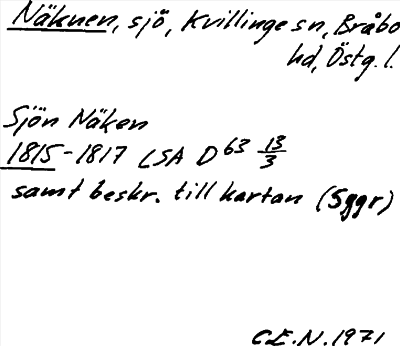 Näknen, sjö, Kvillinge sn, Bråbo
hd, Östg. l.
Sjön Näken
1815-1817 LSA D63 13/3
samt beskr. till kartan (5ggr)
C.E.N. 1971